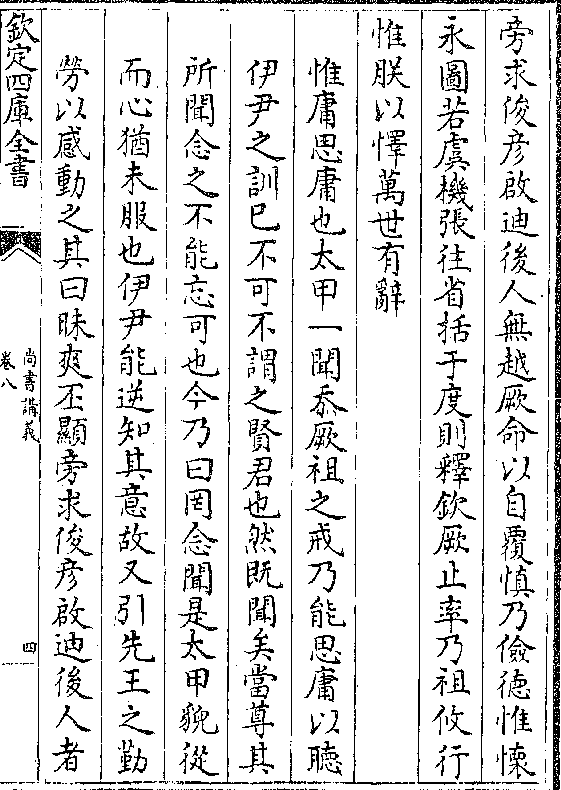 旁求俊彦啟迪後人無越厥命以自覆慎乃儉德惟懐
永圖若虞機張往省括于度則釋欽厥止率乃祖攸行
惟朕以懌萬世有辭
惟庸思庸也太甲一聞忝厥祖之戒乃能思庸以聽
伊尹之訓已不可不謂之賢君也然既聞矣當尊其
所聞念之不能忘可也今乃曰罔念聞是太甲貌從
而心猶未服也伊尹能逆知其意故又引先王之勤
勞以感動之其曰昧爽丕顯旁求俊彦啟迪後人者
欽定四庫全書
尚書講義
卷八
四